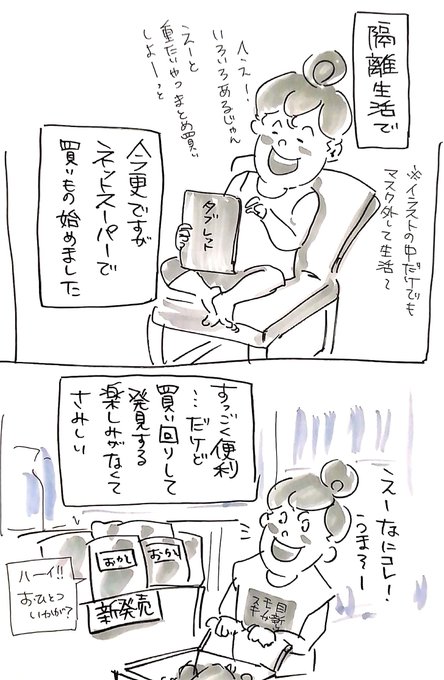 隔離生活で
へえー!
いろいろあるじゃん
えーと
重たいやつまとめ買い
しよーっと
※イラストの中だけでも
マスク外して生活〜
タブレット
今更ですが
ネットスーパーで
買いもの始めました
すっごく便利
…だけど
買い回りして
発見する
楽しみがなくて
さみしい
えーなにコレ!
うまそー
おかし
おかし
新発売
ハーイ!!
おひとつ
いかが?